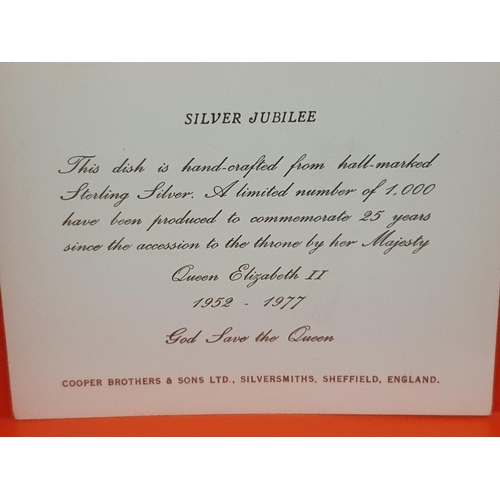 SILVER JUBILEE
This dish is hand-crafted from hall-marked
Sterling Silver. A limited number of 1,000
have been produced to commemorate 25 years
since the accession to the throne by her Majesty
Queen Elizabeth II
1952 - 1977
God Save the Queen
COOPER BROTHERS & SONS LTD., SILVERSMITHS, SHEFFIELD, ENGLAND.